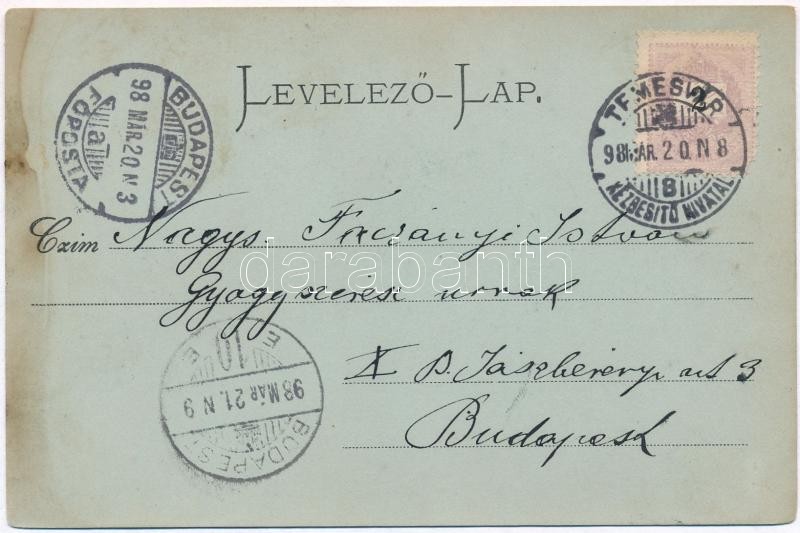 LEVELEZŐ-LAP.
2
TEMESVÁR
98 MÁR. 20. N 8
8
KÉZBESITŐ HIVATAL
BUDAPEST
98 MÁR. 20. N 3
a
FŐPOSTA
Czim Nagys. Facsányi István
Gyógyszerész urnak
X B. Jászberényi út 3
Budapest
BUDAPEST
98 MÁR 21. N 9
E 10 E
darabanth